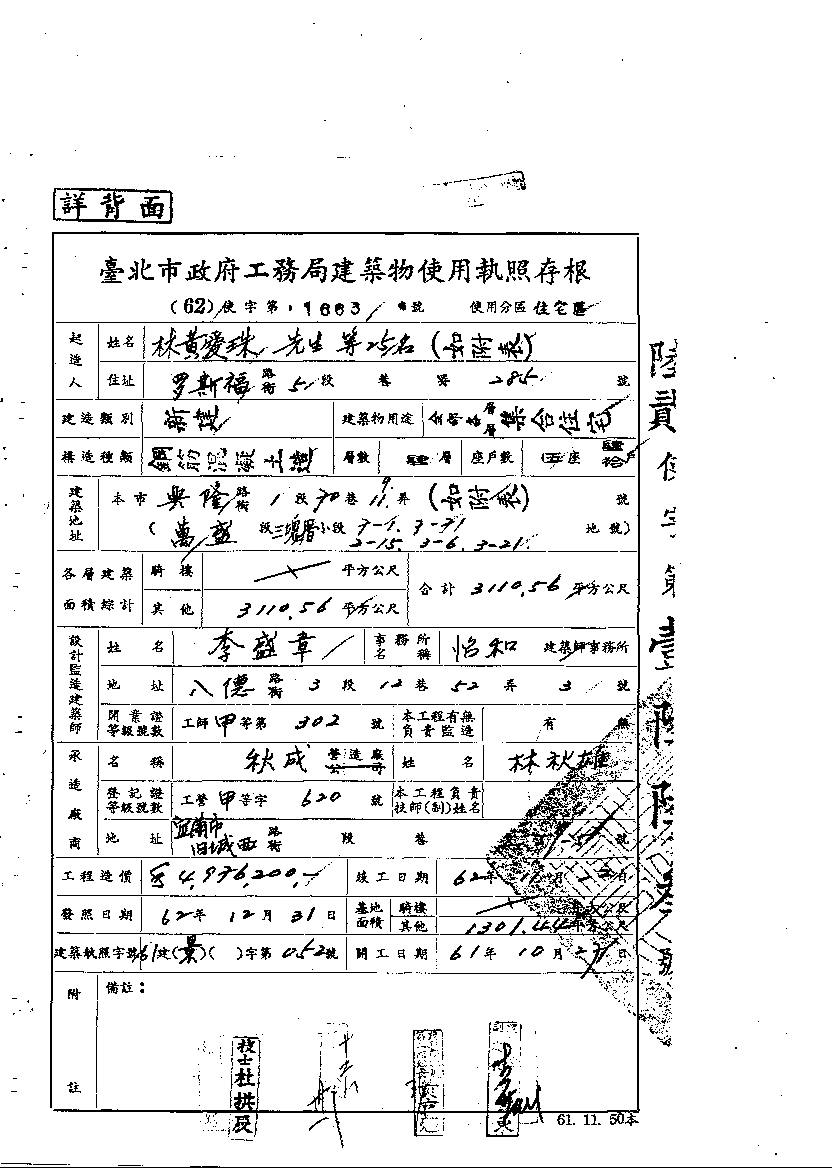 詳背面
臺北市政府工務局建築物使用執照存根
(62)使字第1663號 使用分區住宅區
起造人 姓名 林黃愛珠 先生等25名(如附表)
住址 罗斯福路街5段巷弄285號
建造類別 新建 建築物用途 層層集合住宅
構造種類 鋼筋混凝土造 層數 肆層 座戶數 伍座肆拾戶
建築地址 本市興隆路街1段70巷 9 11弄(如附表)號
(萬盛段小段 3-1. 3-31 地號)
2-15. 3-6. 3-21.
各層建築面積綜計 騎樓 平方公尺 合計 3110.56 平方公尺
其他 3110.56 平方公尺
設計監造建築師 姓名 李盛章 事務所名稱 怡和 建築師事務所
地址 八德路街3段12巷52弄3號
開業證等級號數 工師甲等第302號 本工程有無負責監造 有 無
承造廠商 名稱 秋成 營造廠公司 姓名 林秋雄
登記證等級號數 工營甲等字620號 本工程負責技師(制)姓名
地址 宜蘭市旧城西路街 段 巷 號
工程造價 4,976,200.- 竣工日期 62年11月2日
發照日期 62年12月31日 基地面積 騎樓 平方公尺
其他 1301.44平方公尺
建築執照字號61建(景)( )字第052號 開工日期 61年10月日
附註 備註：
技士杜拱辰
61. 11. 50本
陸貳使字第壹陸陸叁號